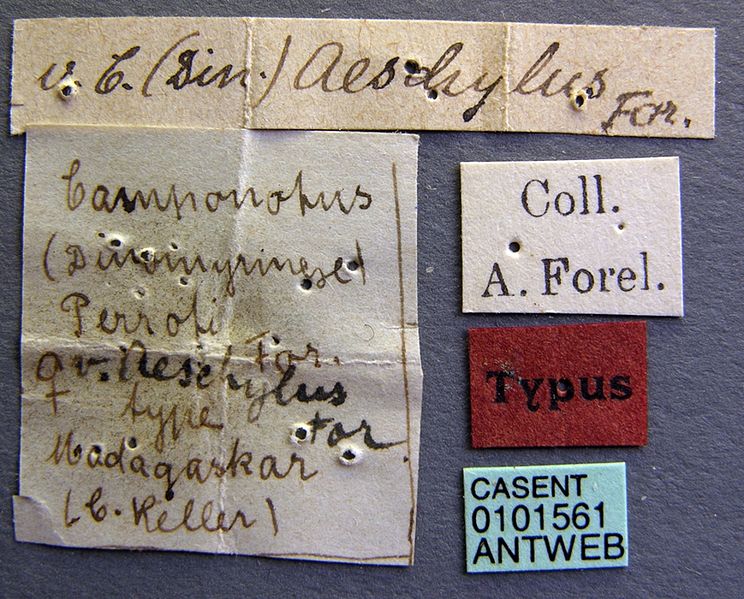 v. C. (Din.) Aeschylus
For.
Camponotus
(Dinomyrmex)
Perroti
For.
♀ v. Aeschylus
type For.
Madagaskar
(C. Keller)
Coll.
A. Forel.
Typus
CASENT
0101561
ANTWEB